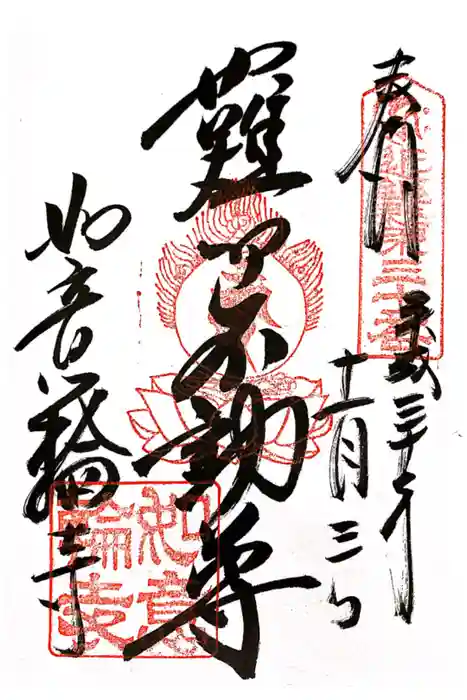 奉拝
平成三十年
十一月三日
難不動尊
如意輪寺
如意
輪寺